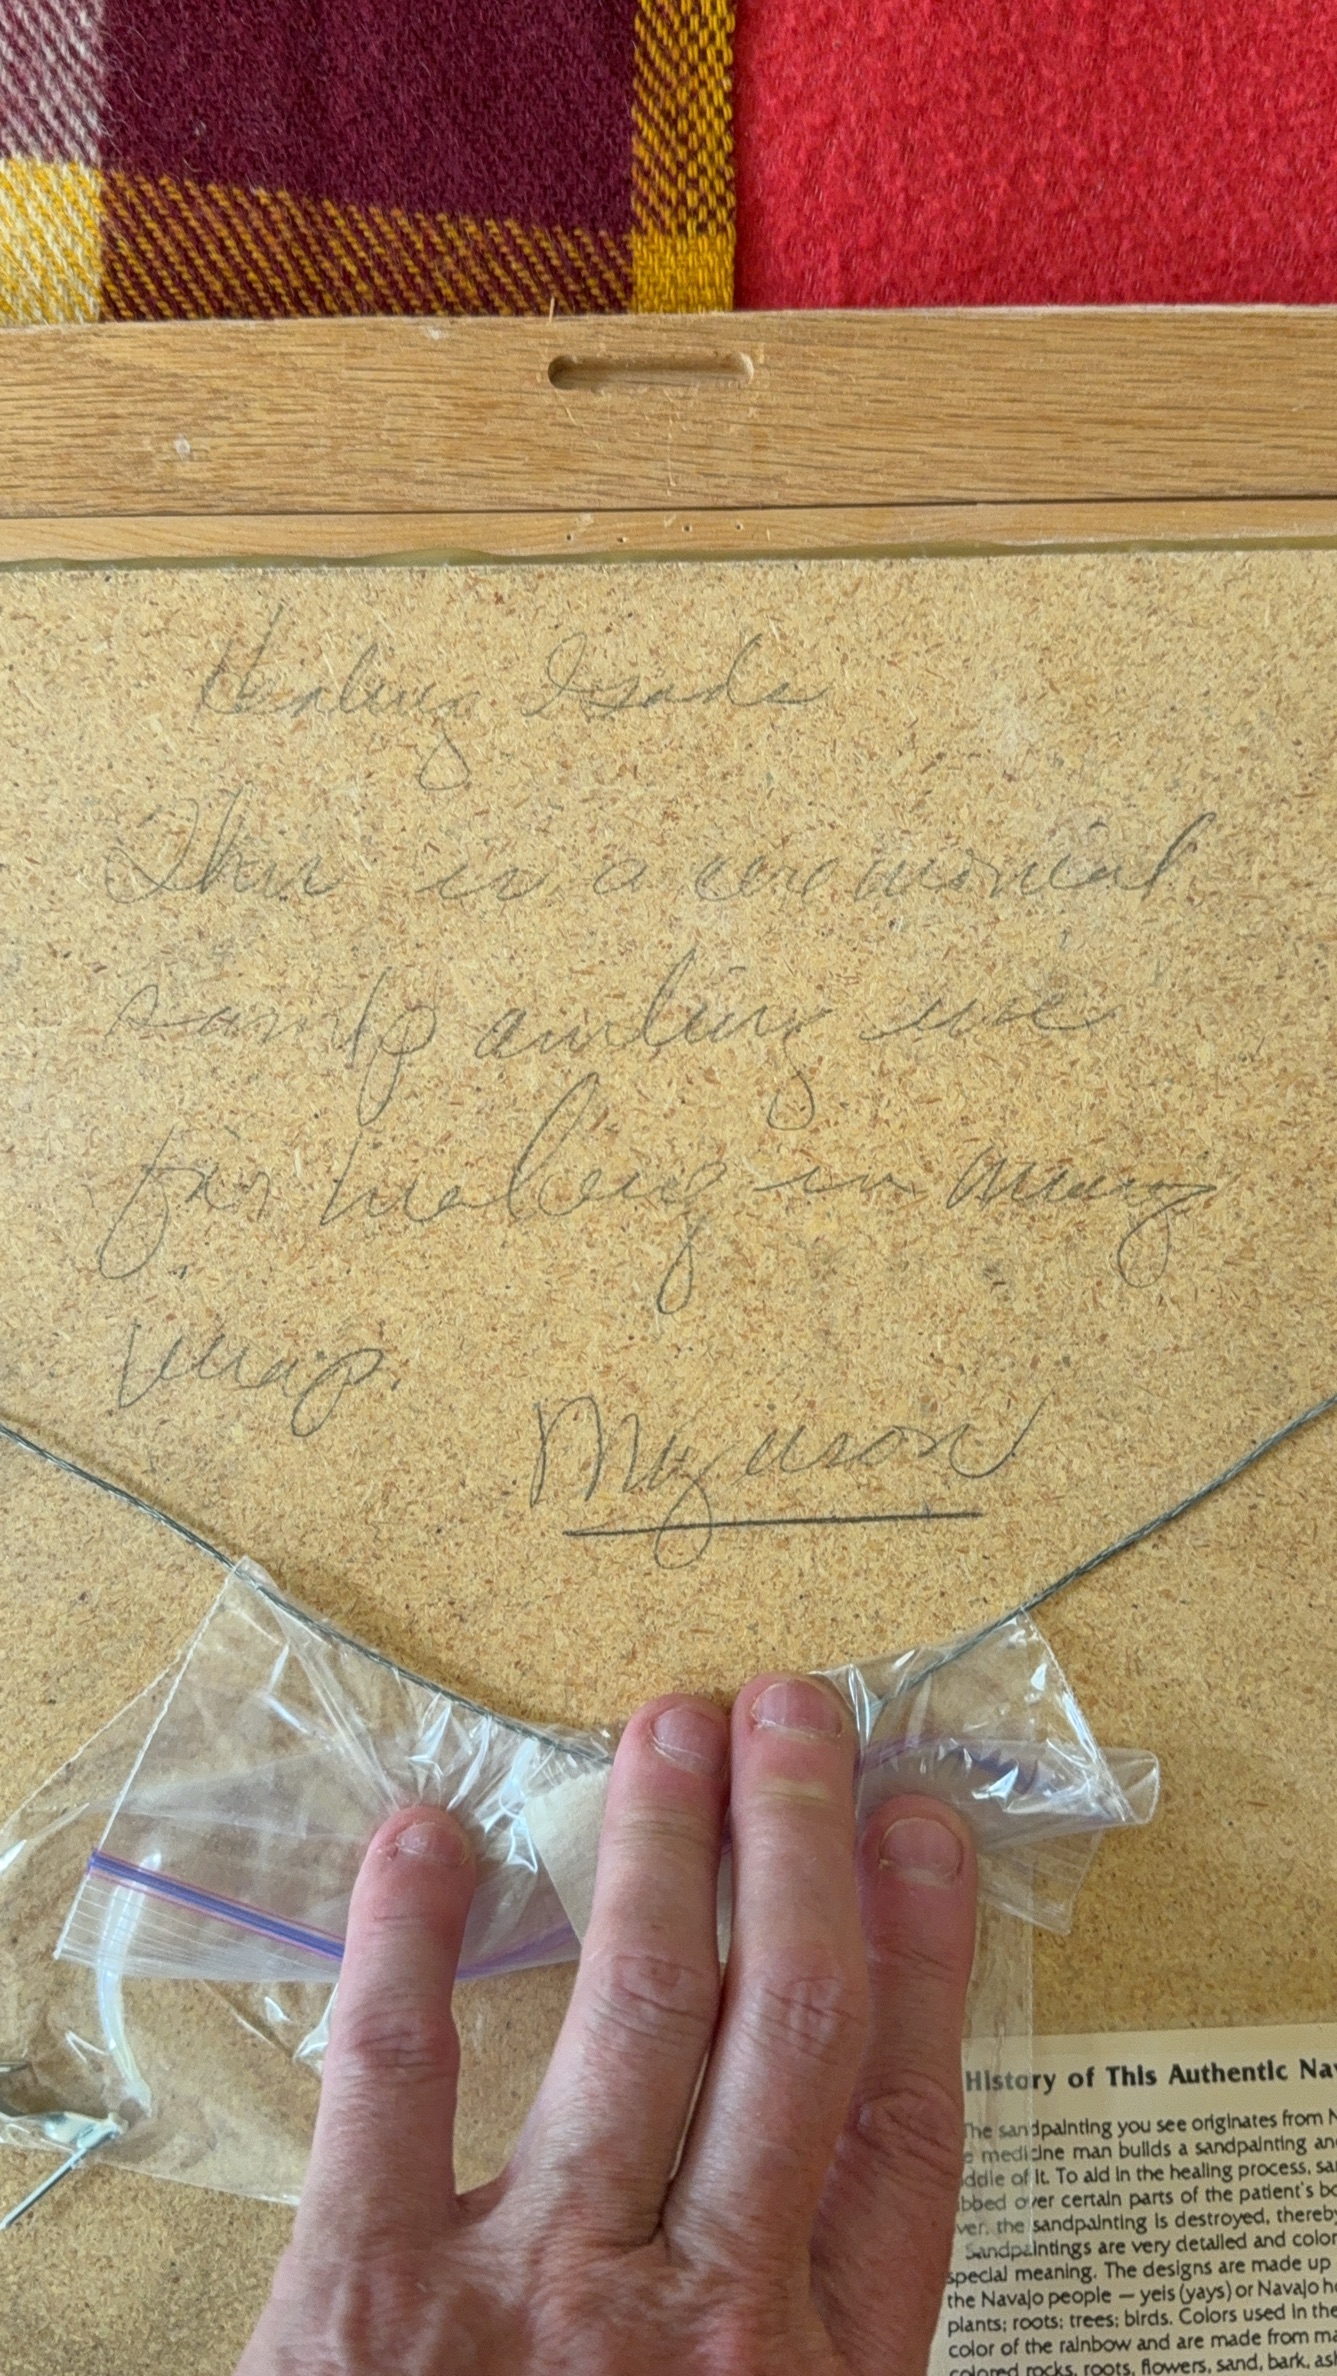 Healing Gods
This is a ceremonial
sandpainting use
for healing in many
ways.
History of This Authentic Nav
The sandpainting you see originates from N
e medicine man builds a sandpainting and
ddle of it. To aid in the healing process, sa
bbed over certain parts of the patient's bo
ver, the sandpainting is destroyed, thereby
Sandpaintings are very detailed and color
special meaning. The designs are made up
the Navajo people — yeis (yays) or Navajo ho
plants; roots; trees; birds. Colors used in the
color of the rainbow and are made from ma
colored rocks, roots, flowers, sand, bark, ash